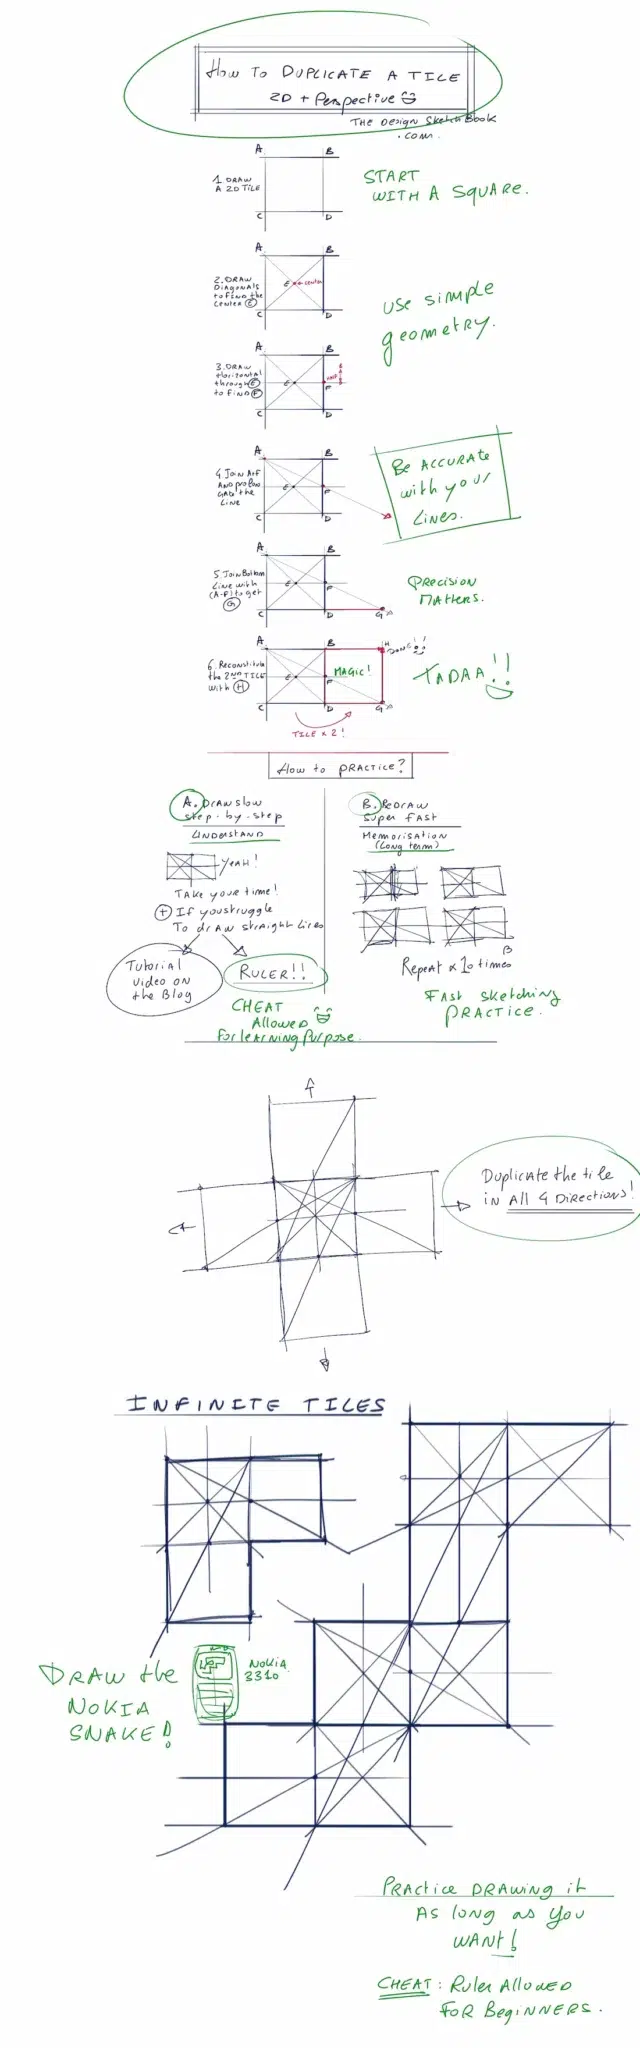 How To DUPLICATE A TILE
2D + Perspective
THE DESIGN SketchBook
.com.
A B
1. DRAW
A 2D TILE
C D
START
WITH A SQUARE.
A B
2. DRAW
DIAGONALS
to FIND the
CENTER E
E center
C D
USE SIMPLE
geometry.
A B
3. DRAW
Horizontal
through E
to FIND F
E F
C D
A B
4. Join A+F
AND prolon
GATE the
LINE
E F
C D
Be ACCURATE
with your
Lines.
A B
5. Join Bottom
Line with
(A-F) to get
G
E F
C D G
PRECISION
MATTERS.
A B H
DONE!
6. Reconstitute
the 2ND TILE
with H
E F MAGIC!
C D G
TADAA!!
TILE x 2!
How to PRACTICE?
A. Draw slow
step-by-step
UNDERSTAND
YEAH!
TAKE your time!
+ If you struggle
To draw straight lines
Tutorial
video on
the Blog
RULER!!
CHEAT
Allowed
For learning Purpose.
B. REDRAW
Super FAST
Memorisation
(Long term)
Repeat x 10 times
FAST Sketching
PRACTICE.
Duplicate the tile
in All 4 DIRECTIONS!
INFINITE TILES
DRAW the
NOKIA
SNAKE!
NOKIA
3310
PRACTICE DRAWING it
AS long as you
WANT!
CHEAT: Ruler Allowed
FOR Beginners.